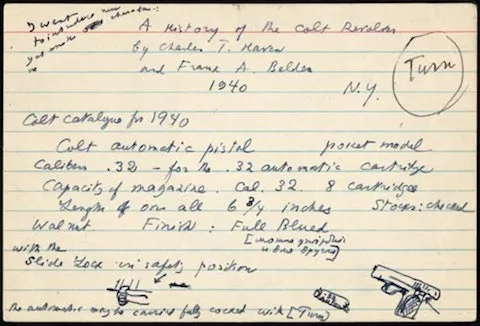 I want
to introduce
A History of the Colt Revolver
by Charles T. Haven
and Frank A. Belden
1940 N.Y.
Turn
Colt catalogue for 1940
Colt automatic pistol pocket model
Calibers .32 – for the .32 automatic cartridge
Capacity of magazine. Cal. 32 8 cartridges
Length of over all 6 3/4 inches Stocks: checked
Walnut Finish: Full Blued
with the
Slide Lock in safety position
The automatic may be carried fully cocked with [Turn]